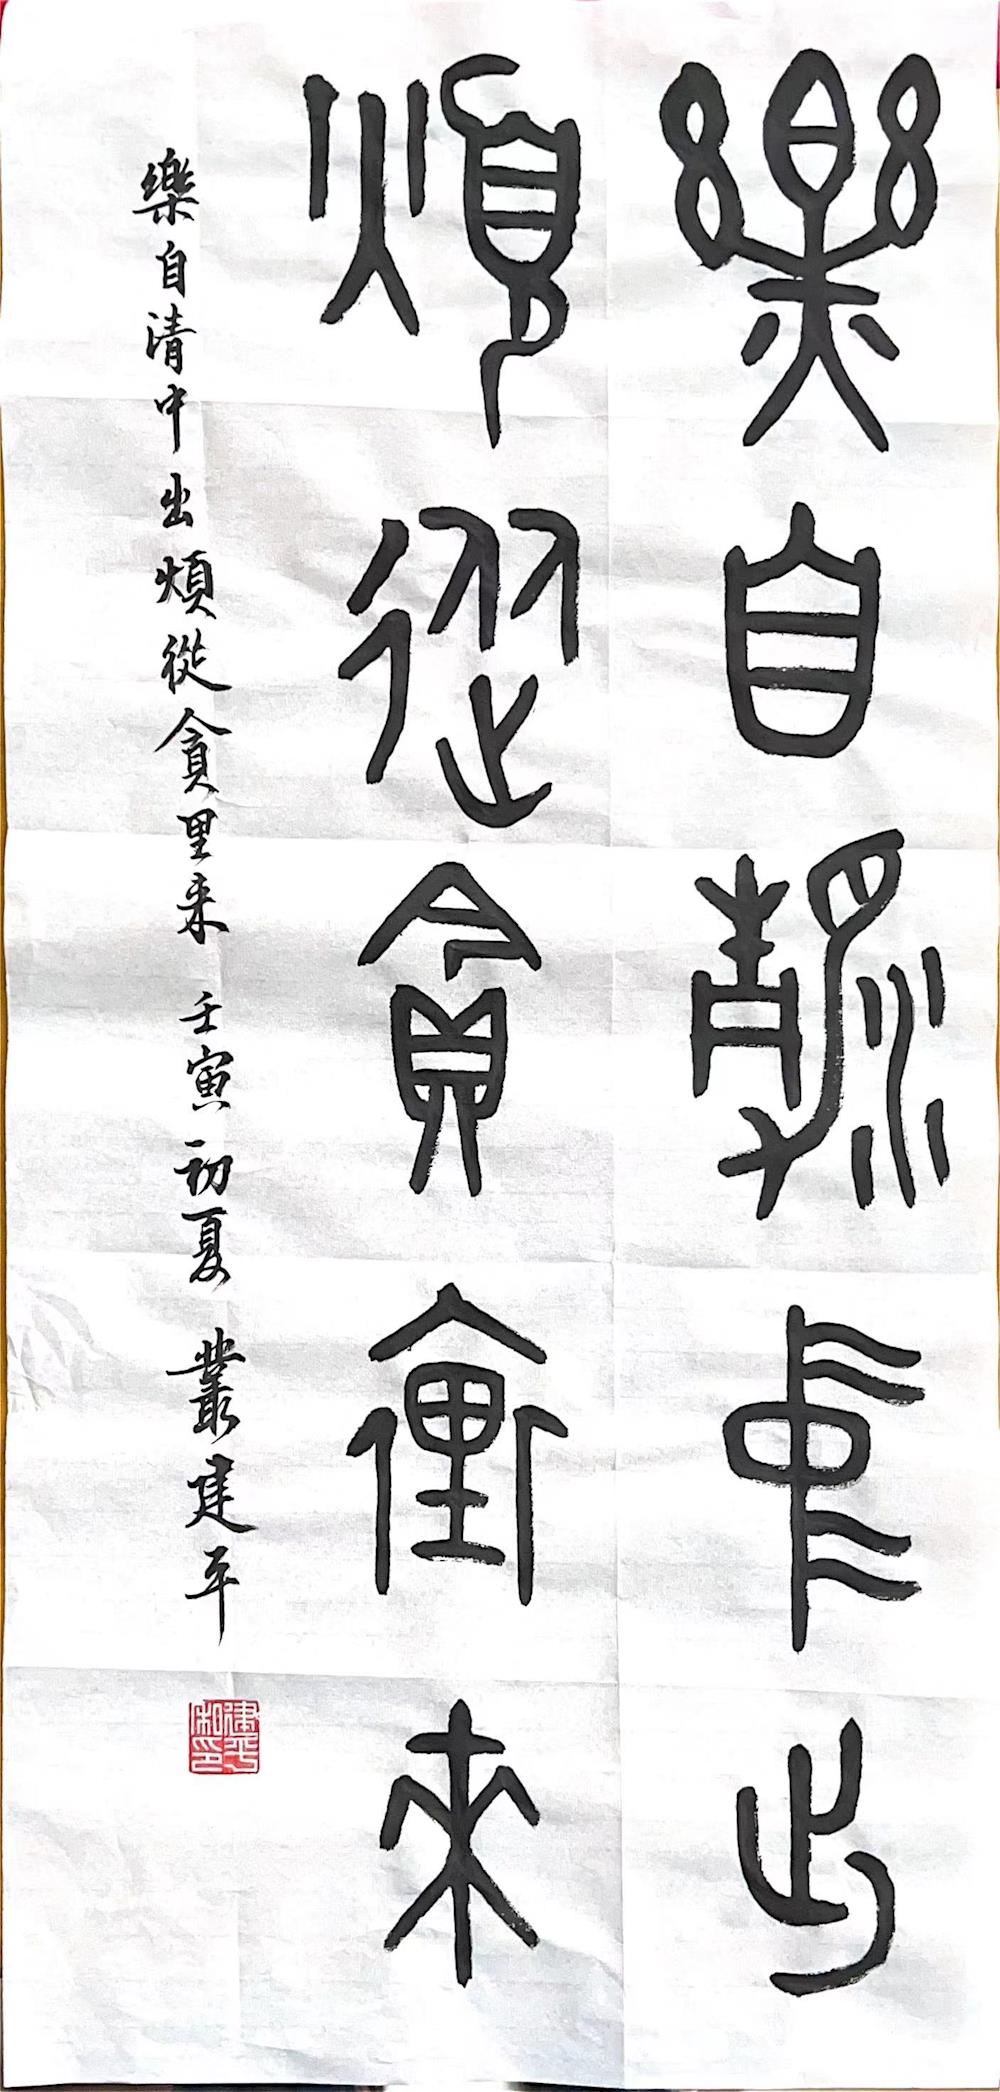 樂自清中出
煩從貪里來
樂自清中出煩從貪里来 壬寅初夏 叢建平
建平私印